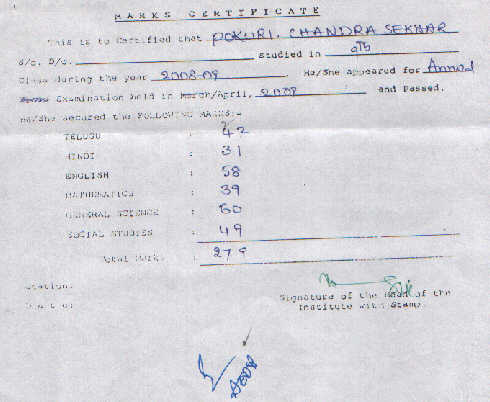 MARKS CERTIFICATE
This is to Certified that POKURI. CHANDRA SEKHAR
S/o. D/o. studied in 9th
Class during the year 2008-09 He/She appeared for Annual
Examination held in March/April, 2009 and Passed.
He/She secured the FOLLOWING MARKS:-
TELUGU : 42
HINDI : 31
ENGLISH : 58
MATHEMATICS : 39
GENERAL SCIENCE : 60
SOCIAL STUDIES : 49
Total Marks : 279
Station:
Date:
Signature of the Head of the
Institute with Stamp.